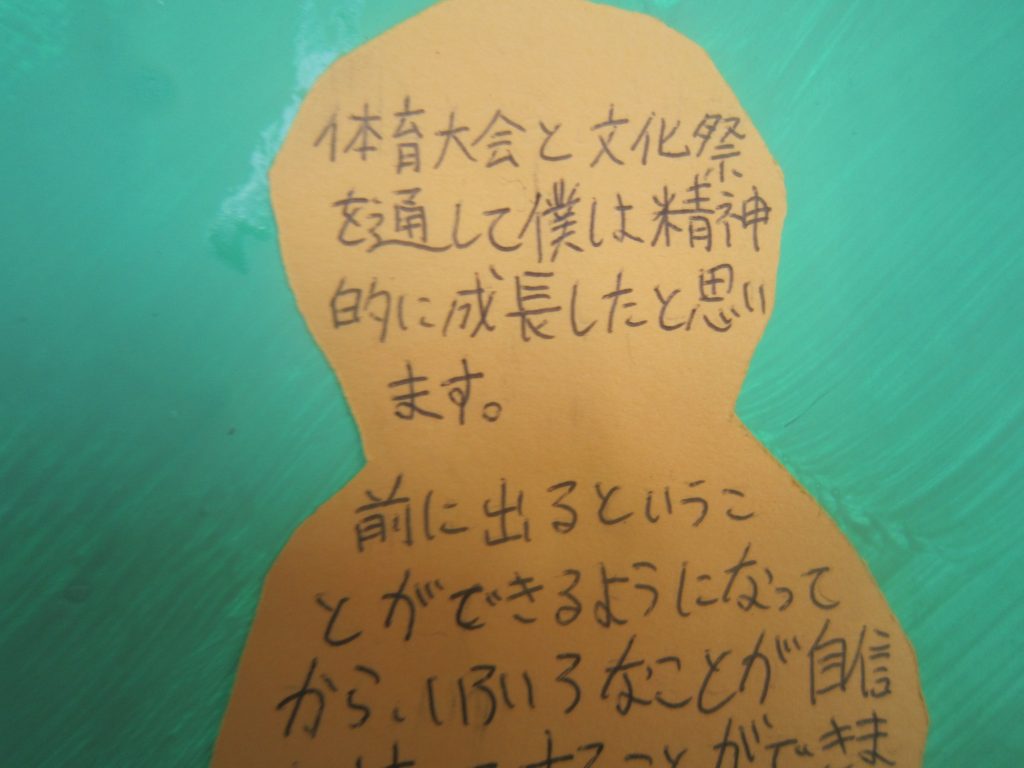 体育大会と文化祭
を通して僕は精神
的に成長したと思い
ます。
前に出るというこ
とができるようになって
から、いろいろなことが自信
することができま